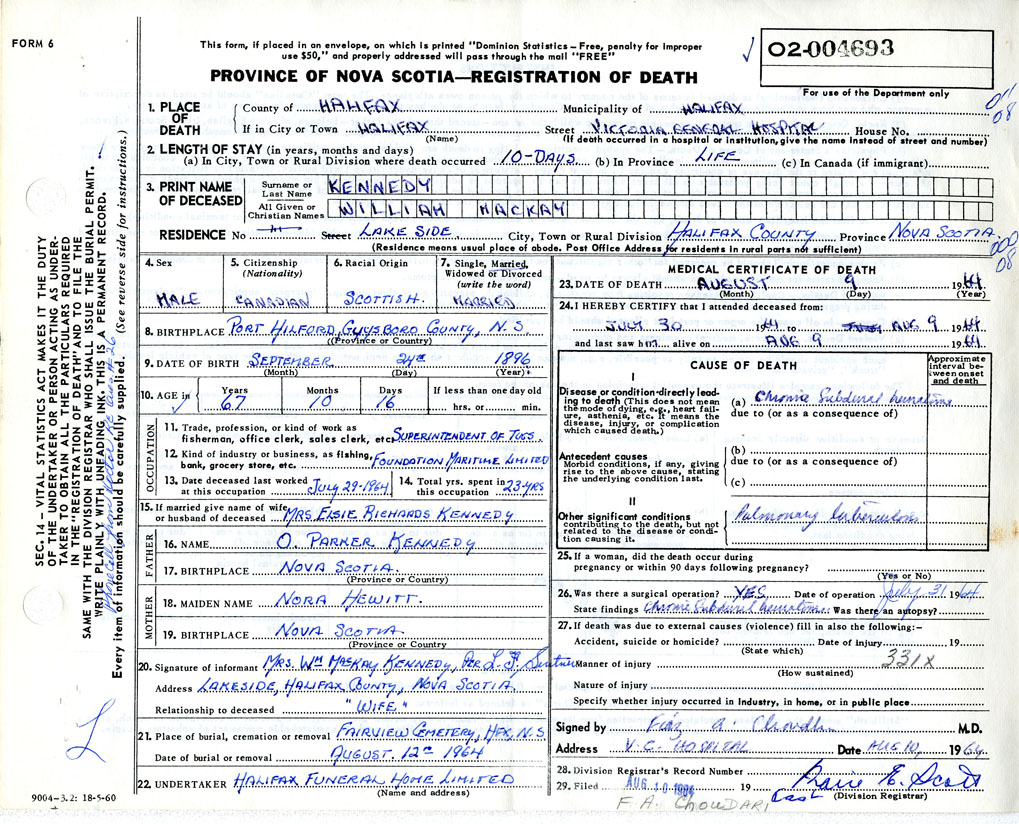 FORM 6
This form, if placed in an envelope, on which is printed "Dominion Statistics – Free, penalty for improper
use $50," and properly addressed will pass through the mail "FREE"
PROVINCE OF NOVA SCOTIA—REGISTRATION OF DEATH
02-004693
For use of the Department only
1. PLACE OF DEATH
County of HALIFAX Municipality of HALIFAX
If in City or Town HALIFAX Street VICTORIA GENERAL HOSPITAL House No.
(Name) (If death occurred in a hospital or institution, give the name instead of street and number)
2. LENGTH OF STAY (in years, months and days)
(a) In City, Town or Rural Division where death occurred 10-DAYS (b) In Province LIFE (c) In Canada (if immigrant)
3. PRINT NAME OF DECEASED
Surname or Last Name KENNEDY
All Given or Christian Names WILLIAM MACKAY
RESIDENCE No Street LAKE SIDE City, Town or Rural Division HALIFAX COUNTY Province NOVA SCOTIA
(Residence means usual place of abode. Post Office Address for residents in rural parts not sufficient)
4. Sex MALE
5. Citizenship (Nationality) CANADIAN
6. Racial Origin SCOTTISH.
7. Single, Married, Widowed or Divorced (write the word) MARRIED
8. BIRTHPLACE PORT HILFORD, GUYSBORO COUNTY, N.S.
(Province or Country)
9. DATE OF BIRTH SEPTEMBER 24th 1896
(Month) (Day) (Year)
10. AGE in Years 67 Months 10 Days 16 If less than one day old hrs. or min.
OCCUPATION
11. Trade, profession, or kind of work as
fisherman, office clerk, sales clerk, etc. SUPERINTENDENT OF TUGS.
12. Kind of industry or business, as fishing,
bank, grocery store, etc. FOUNDATION MARITIME LIMITED
13. Date deceased last worked at this occupation JULY 29-1964
14. Total yrs. spent in this occupation 23-YRS
15. If married give name of wife
or husband of deceased MRS ELSIE RICHARDS KENNEDY
FATHER
16. NAME O. PARKER KENNEDY
17. BIRTHPLACE NOVA SCOTIA.
(Province or Country)
MOTHER
18. MAIDEN NAME NORA HEWITT.
19. BIRTHPLACE NOVA SCOTIA
(Province or Country)
20. Signature of informant MRS. WM MACKAY KENNEDY, PER L. F.
Address LAKESIDE, HALIFAX COUNTY, NOVA SCOTIA
Relationship to deceased "WIFE"
21. Place of burial, cremation or removal FAIRVIEW CEMETERY, HFX, N.S
Date of burial or removal AUGUST. 12th 1964
22. UNDERTAKER HALIFAX FUNERAL HOME LIMITED
(Name and address)
9004–3.2: 18-5-60
MEDICAL CERTIFICATE OF DEATH
23. DATE OF DEATH AUGUST 9 1964
(Month) (Day) (Year)
24. I HEREBY CERTIFY that I attended deceased from:
JULY 30 1964 to AUG 9 1964
and last saw him alive on AUG 9 1964.
CAUSE OF DEATH
Approximate interval between onset and death
I
Disease or condition directly leading to death (This does not mean the mode of dying, e.g., heart failure, asthenia, etc. It means the disease, injury, or complication which caused death.)
(a) Chronic Subdural hematoma
due to (or as a consequence of)
Antecedent causes
Morbid conditions, if any, giving rise to the above cause, stating the underlying condition last.
(b)
due to (or as a consequence of)
(c)
II
Other significant conditions
contributing to the death, but not related to the disease or condition causing it.
Pulmonary tuberculosis
25. If a woman, did the death occur during
pregnancy or within 90 days following pregnancy?
(Yes or No)
26. Was there a surgical operation? YES Date of operation July 31 1964
State findings Chronic Subdural hematoma Was there an autopsy?
27. If death was due to external causes (violence) fill in also the following:–
Accident, suicide or homicide? Date of injury 19
(State which)
331X
Manner of injury
(How sustained)
Nature of injury
Specify whether injury occurred in Industry, in home, or in public place
Signed by M.D.
Address V.G. HOSPITAL Date AUG 10, 1964
28. Division Registrar's Record Number
29. Filed AUG 10 1964 19
(Division Registrar)
F. A. CHOWDARI
SEC. 14—VITAL STATISTICS ACT MAKES IT THE DUTY
OF THE UNDERTAKER OR PERSON ACTING AS UNDERTAKER
TO OBTAIN ALL THE PARTICULARS REQUIRED
IN THE "REGISTRATION OF DEATH" AND TO FILE THE
SAME WITH THE DIVISION REGISTRAR WHO SHALL ISSUE THE BURIAL PERMIT.
WRITE PLAINLY WITH UNFADING INK. THIS IS A PERMANENT RECORD.
Every item of information should be carefully supplied. (See reverse side for instructions.)